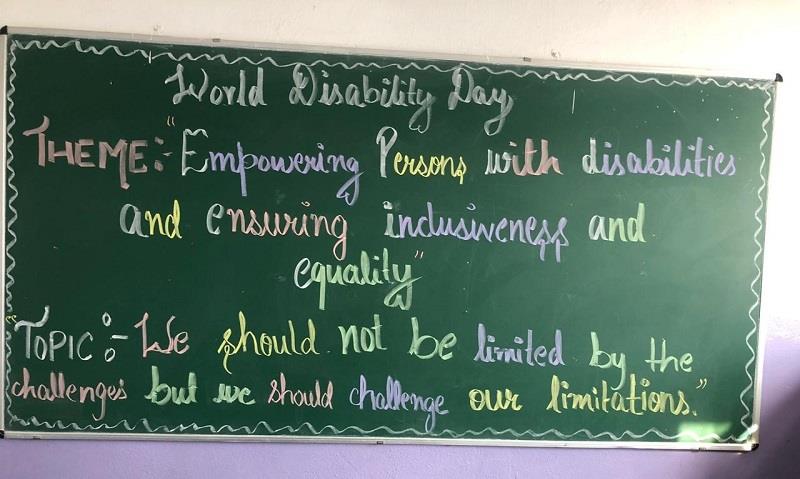 World Disability Day
THEME:- "Empowering Persons with disabilities
and ensuring inclusiveness and
equality"
"TOPIC:- We should not be limited by the
challenges but we should challenge our limitations."